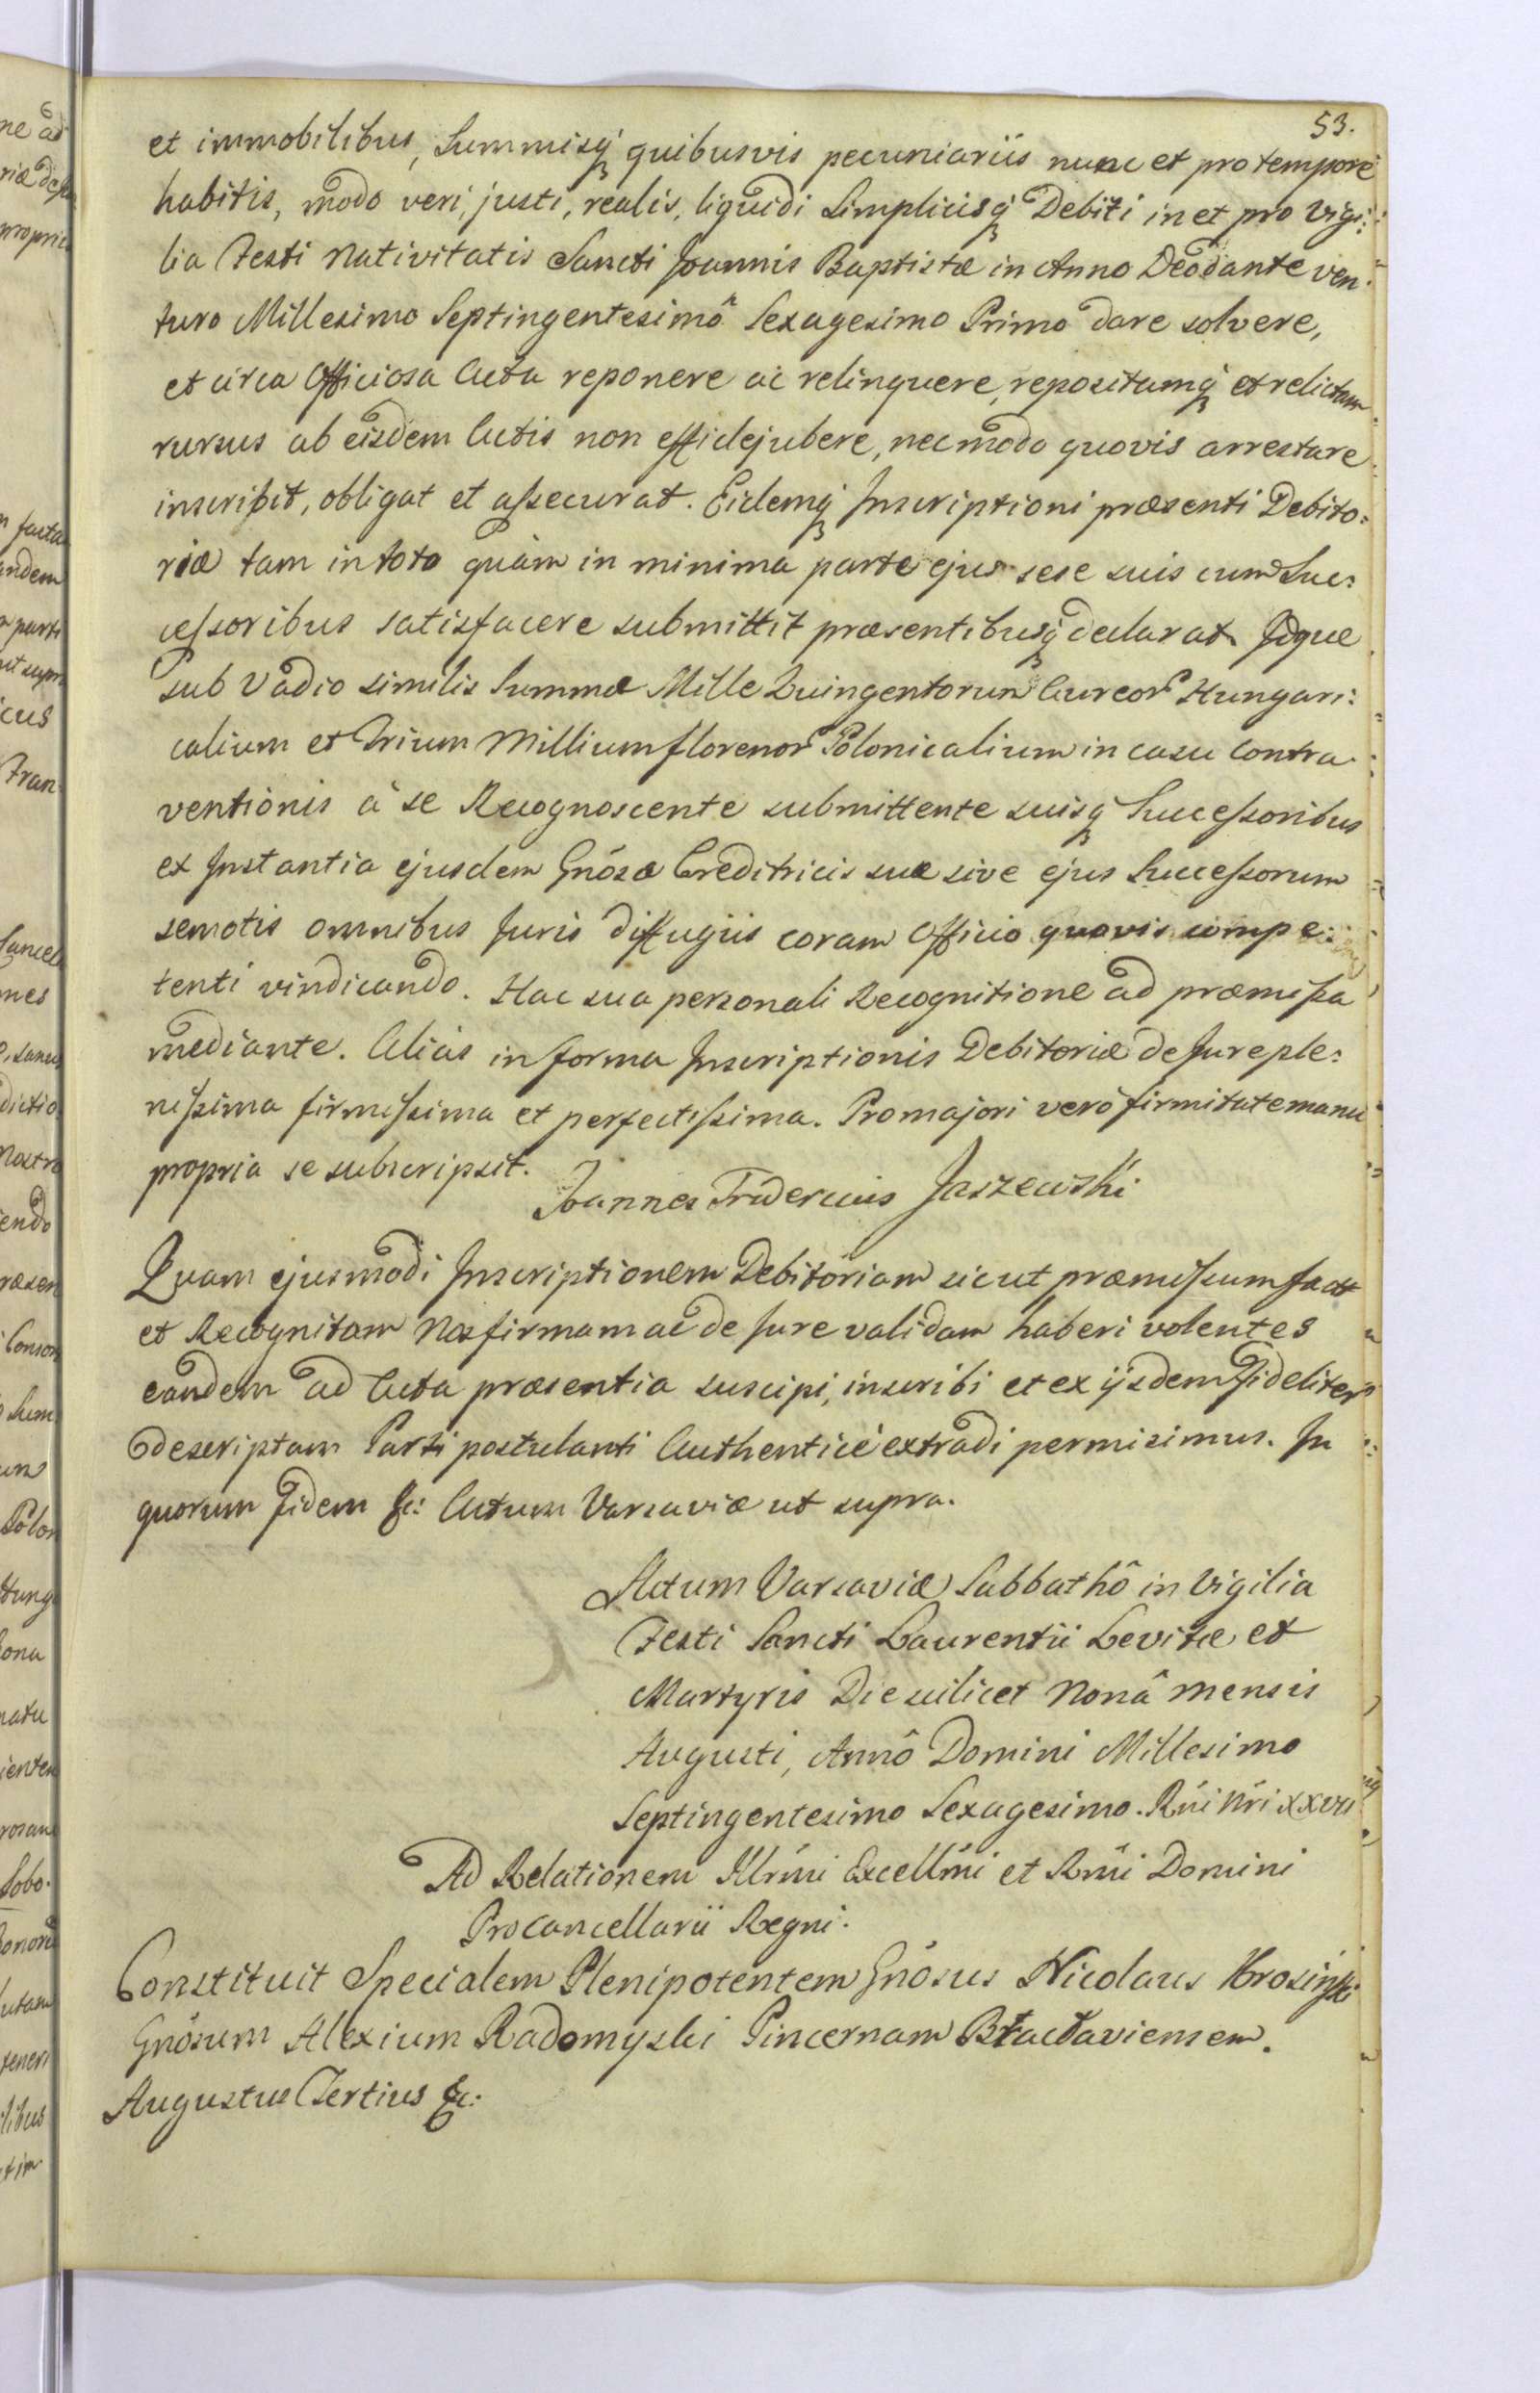 53.
et immobilibus, Summisq́ quibusvis pecuniariis nunc et pro tempore
habitis, modo veri, justi, realis, liquidi Simplicisq́ Debiti in et pro Vigi:
lia Festi Nativitatis Sancti Joannis Baptistæ in Anno Deodante ven:
turo Millesimo Septingentesimô Sexagesimo Primo dare solvere,
et circa Officiosa Acta reponere ac relinquere, repositamq́ et relictam
rursus ab eisdem Actis non effidejubere, nec modo quovis arrestare
inscribit, obligat et assecurat. Eidemq́ Inscriptioni præsenti Debito:
riæ tam in toto quàm in minima parte ejus sese suis cum Suc:
cessoribus satisfacere submittit præsentibusq́ declarat. Idque
sub Vadio similis Summæ Mille Quingentorum Aureor Hungari:
calium et Trium Millium florenor Polonicalium in casu Contra:
ventionis à se Recognoscente submittente suisq́ Successoribus
ex Instantia ejusdem Gnósæ Creditricis suæ sive ejus Successorum
semotis omnibus Juris diffugiis coram Officio quovis compe:
tenti vindicando. Hac sua personali Recognitione ad præmissa
mediante. Aliàs in forma Inscriptionis Debitoriæ de Jure ple:
nissima firmissima et perfectissima. Pro majori verò firmitate manu
propria se subscripsit.
Joannes Fridericus Jaszewski
Quam ejusmodi Inscriptionem Debitoriam sicut præmissum fact
et Recognitam Nos firmam ac de Jure validam haberi volentes
eandem ad Acta præsentia suscipi, inscribi et ex ijsdem Fideliter
descriptam Parti postulanti Authenticè extradi permisimus. In
quorum Fidem &c: Actum Varsaviæ ut supra.
Actum Varsaviæ Sabbathô in Vigilia
Festi Sancti Laurentii Levitæ et
Martyris Die scilicet Nonâ Mensis
Augusti, Annô Domini Millesimo
Septingentesimo Sexagesimo. Rńi Nŕi XXVII
Ad Relationem Illrḿi Excellḿi et Rḿi Domini
Procancellarii Regni.
Constituit Specialem Plenipotentem Gnósus Nicolaus
Gnósum Alexium Radomyski Pincernam Bractaviensem.
Augustus Tertius &c: